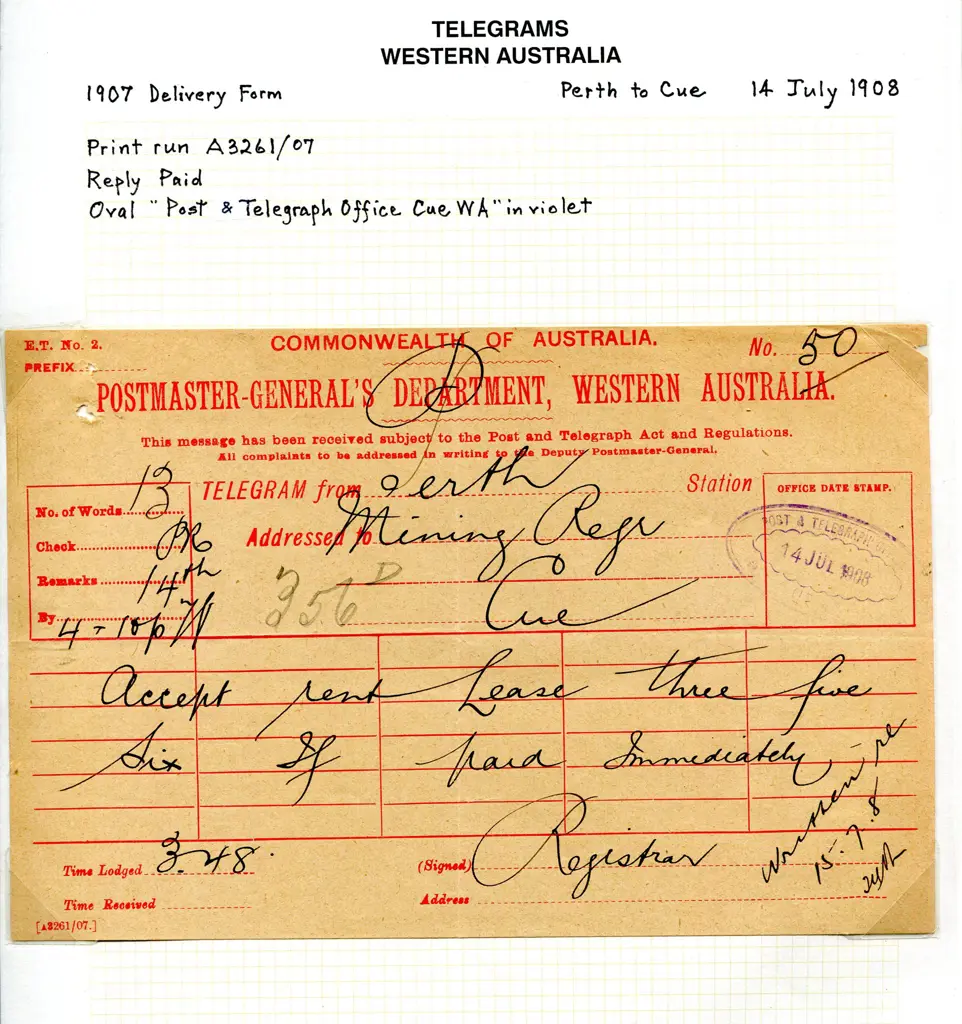 TELEGRAMS
WESTERN AUSTRALIA
1907 Delivery Form Perth to Cue 14 July 1908
Print run A3261/07
Reply Paid
Oval "Post & Telegraph Office Cue WA" in violet
E.T. No. 2. COMMONWEALTH OF AUSTRALIA. No. 50
PREFIX
POSTMASTER-GENERAL'S DEPARTMENT, WESTERN AUSTRALIA.
This message has been received subject to the Post and Telegraph Act and Regulations.
All complaints to be addressed in writing to the Deputy Postmaster-General.
No. of Words 13 TELEGRAM from Perth Station OFFICE DATE STAMP.
Check Addressed to Mining Regr POST & TELEGRAPH
Remarks 14th 356 D Cue 14 JUL 1908
By 4-10p
Accept rent Lease three five
Six If paid Immediately
Written re
15.7.8
Time Lodged 3.48 (Signed) Registrar
Time Received Address
[A3261/07.]